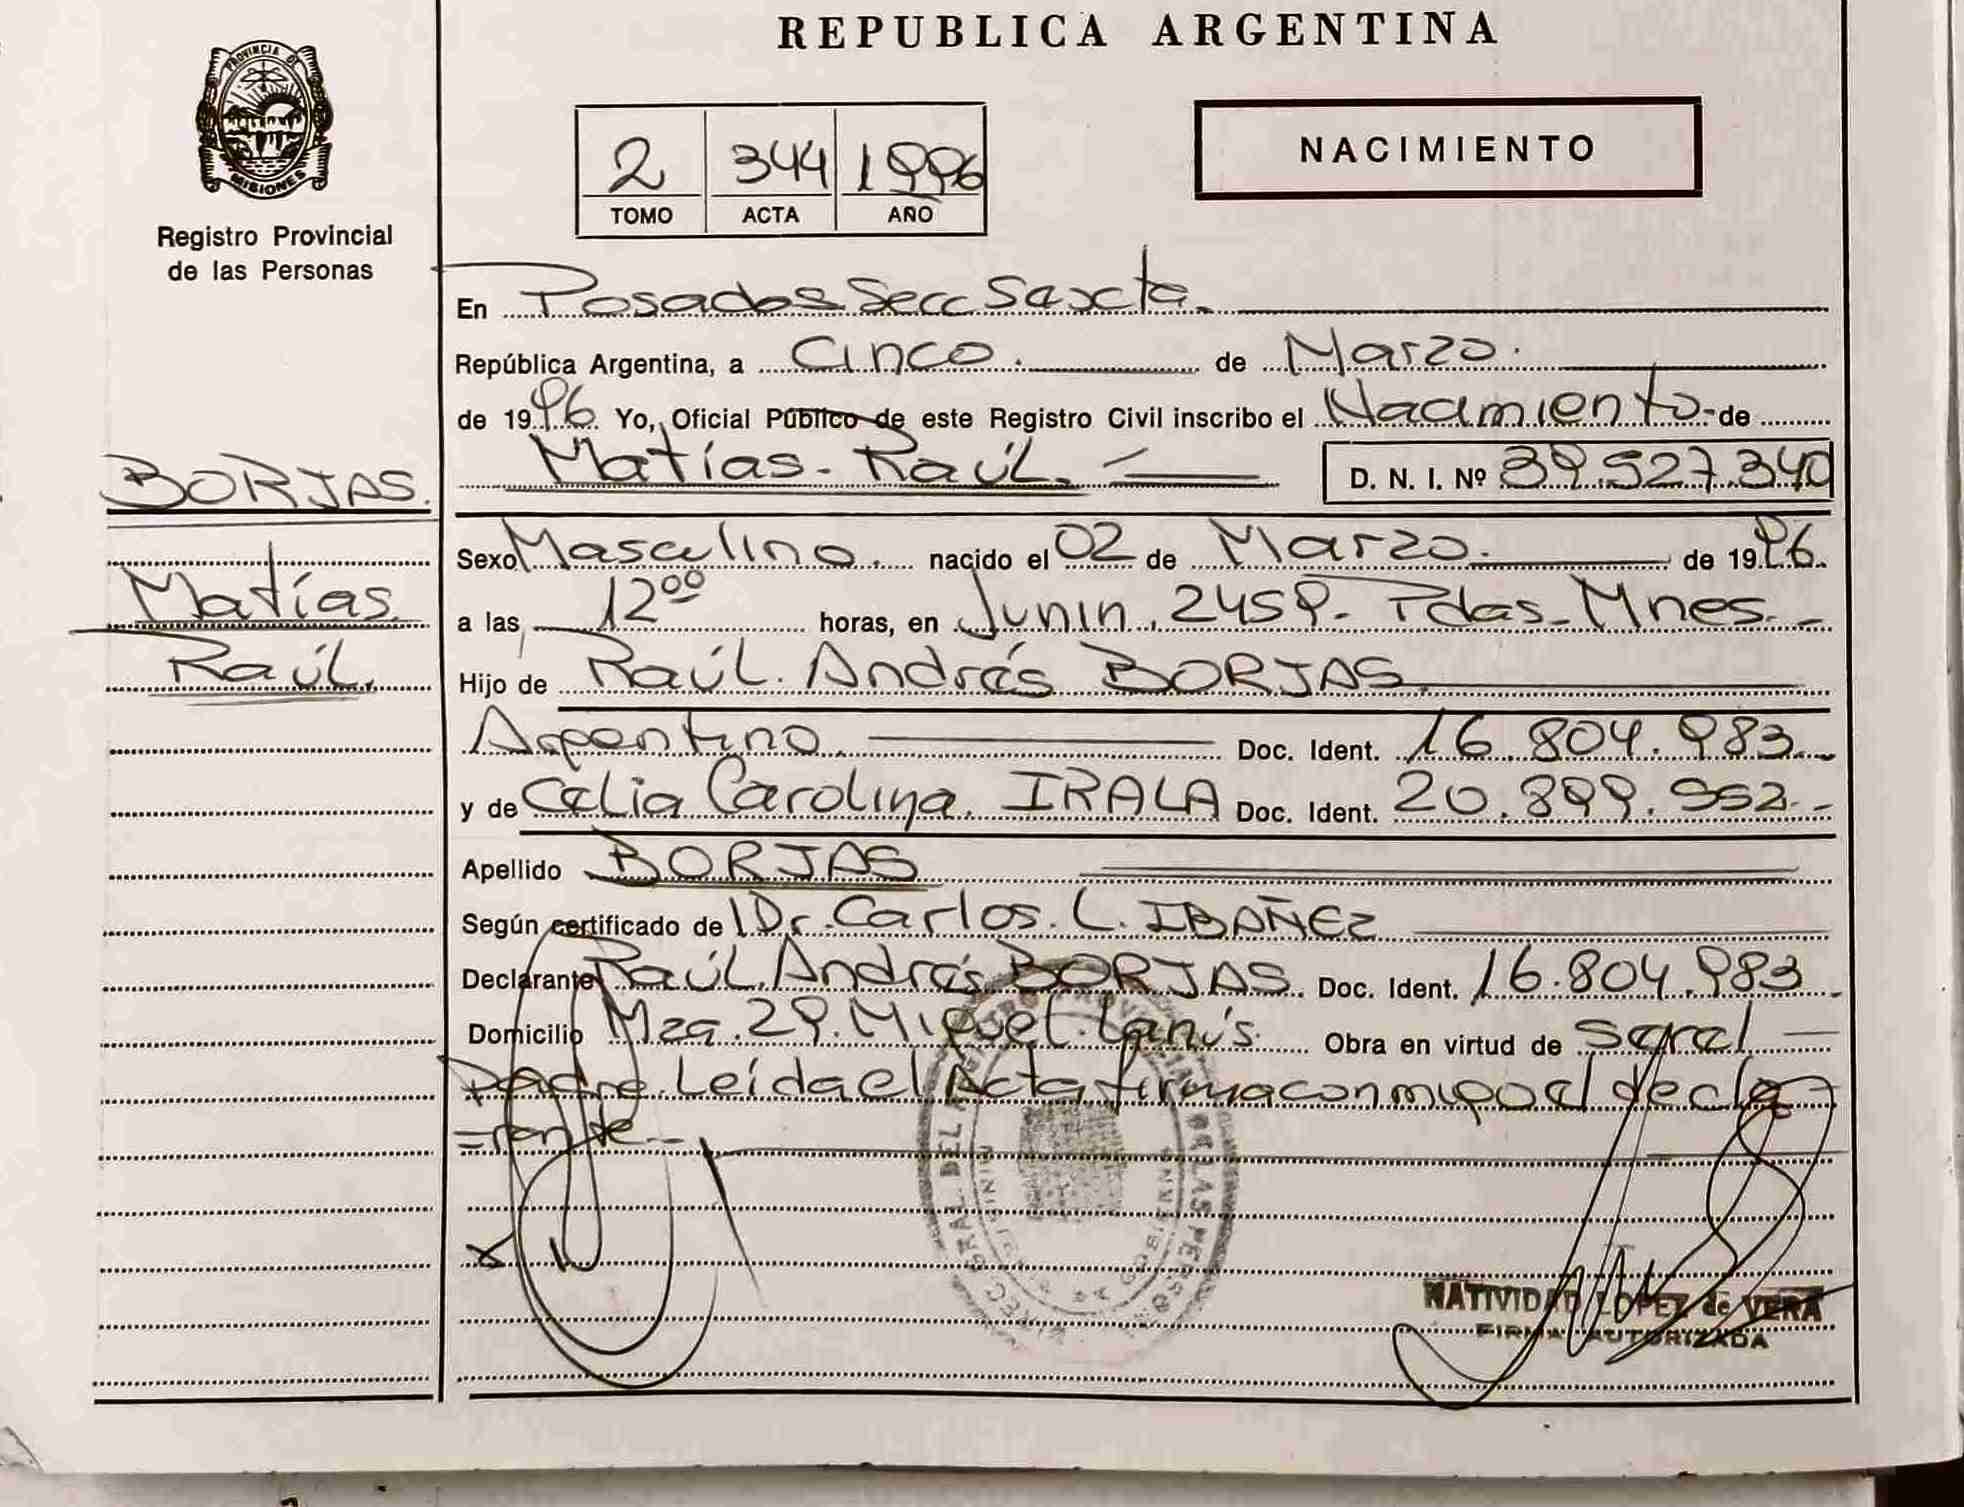 REPUBLICA ARGENTINA
PROVINCIA DE
MISIONES
Registro Provincial
de las Personas
2 344 1996
TOMO ACTA AÑO
NACIMIENTO
En Posadas Secc Sexcta.
República Argentina, a Cinco. de Marzo.
de 1996. Yo, Oficial Público de este Registro Civil inscribo el Nacimiento- de
Matías. Raúl. D. N. I. Nº 39.527.340
BORJAS.
Matías.
Raúl.
Sexo Masculino. nacido el 02 de Marzo. de 1996.
a las 12⁰⁰ horas, en Junin. 2459. Pdas- Mnes.-
Hijo de Raúl. Andrés BORJAS.
Argentino. Doc. Ident. 16.804.983.-
y de Celia Carolina. IRALA Doc. Ident. 20.899.552.-
Apellido BORJAS
Según certificado de Dr. Carlos. L. IBAÑEZ
Declarante Raúl. Andrés BORJAS. Doc. Ident. 16.804.983
Domicilio Mza. 29. Miguel. Lanús. Obra en virtud de ser el
Padre. Leída el Acta firma conmigo el decla
=rante.-
NATIVIDAD LOPEZ de VERA
FIRMA AUTORIZADA